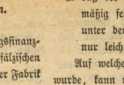 n.
gsfinanz-
fälzischen
er Fabrik
mäßig fe
unter der
nur leich
Auf welche
wurde, kann